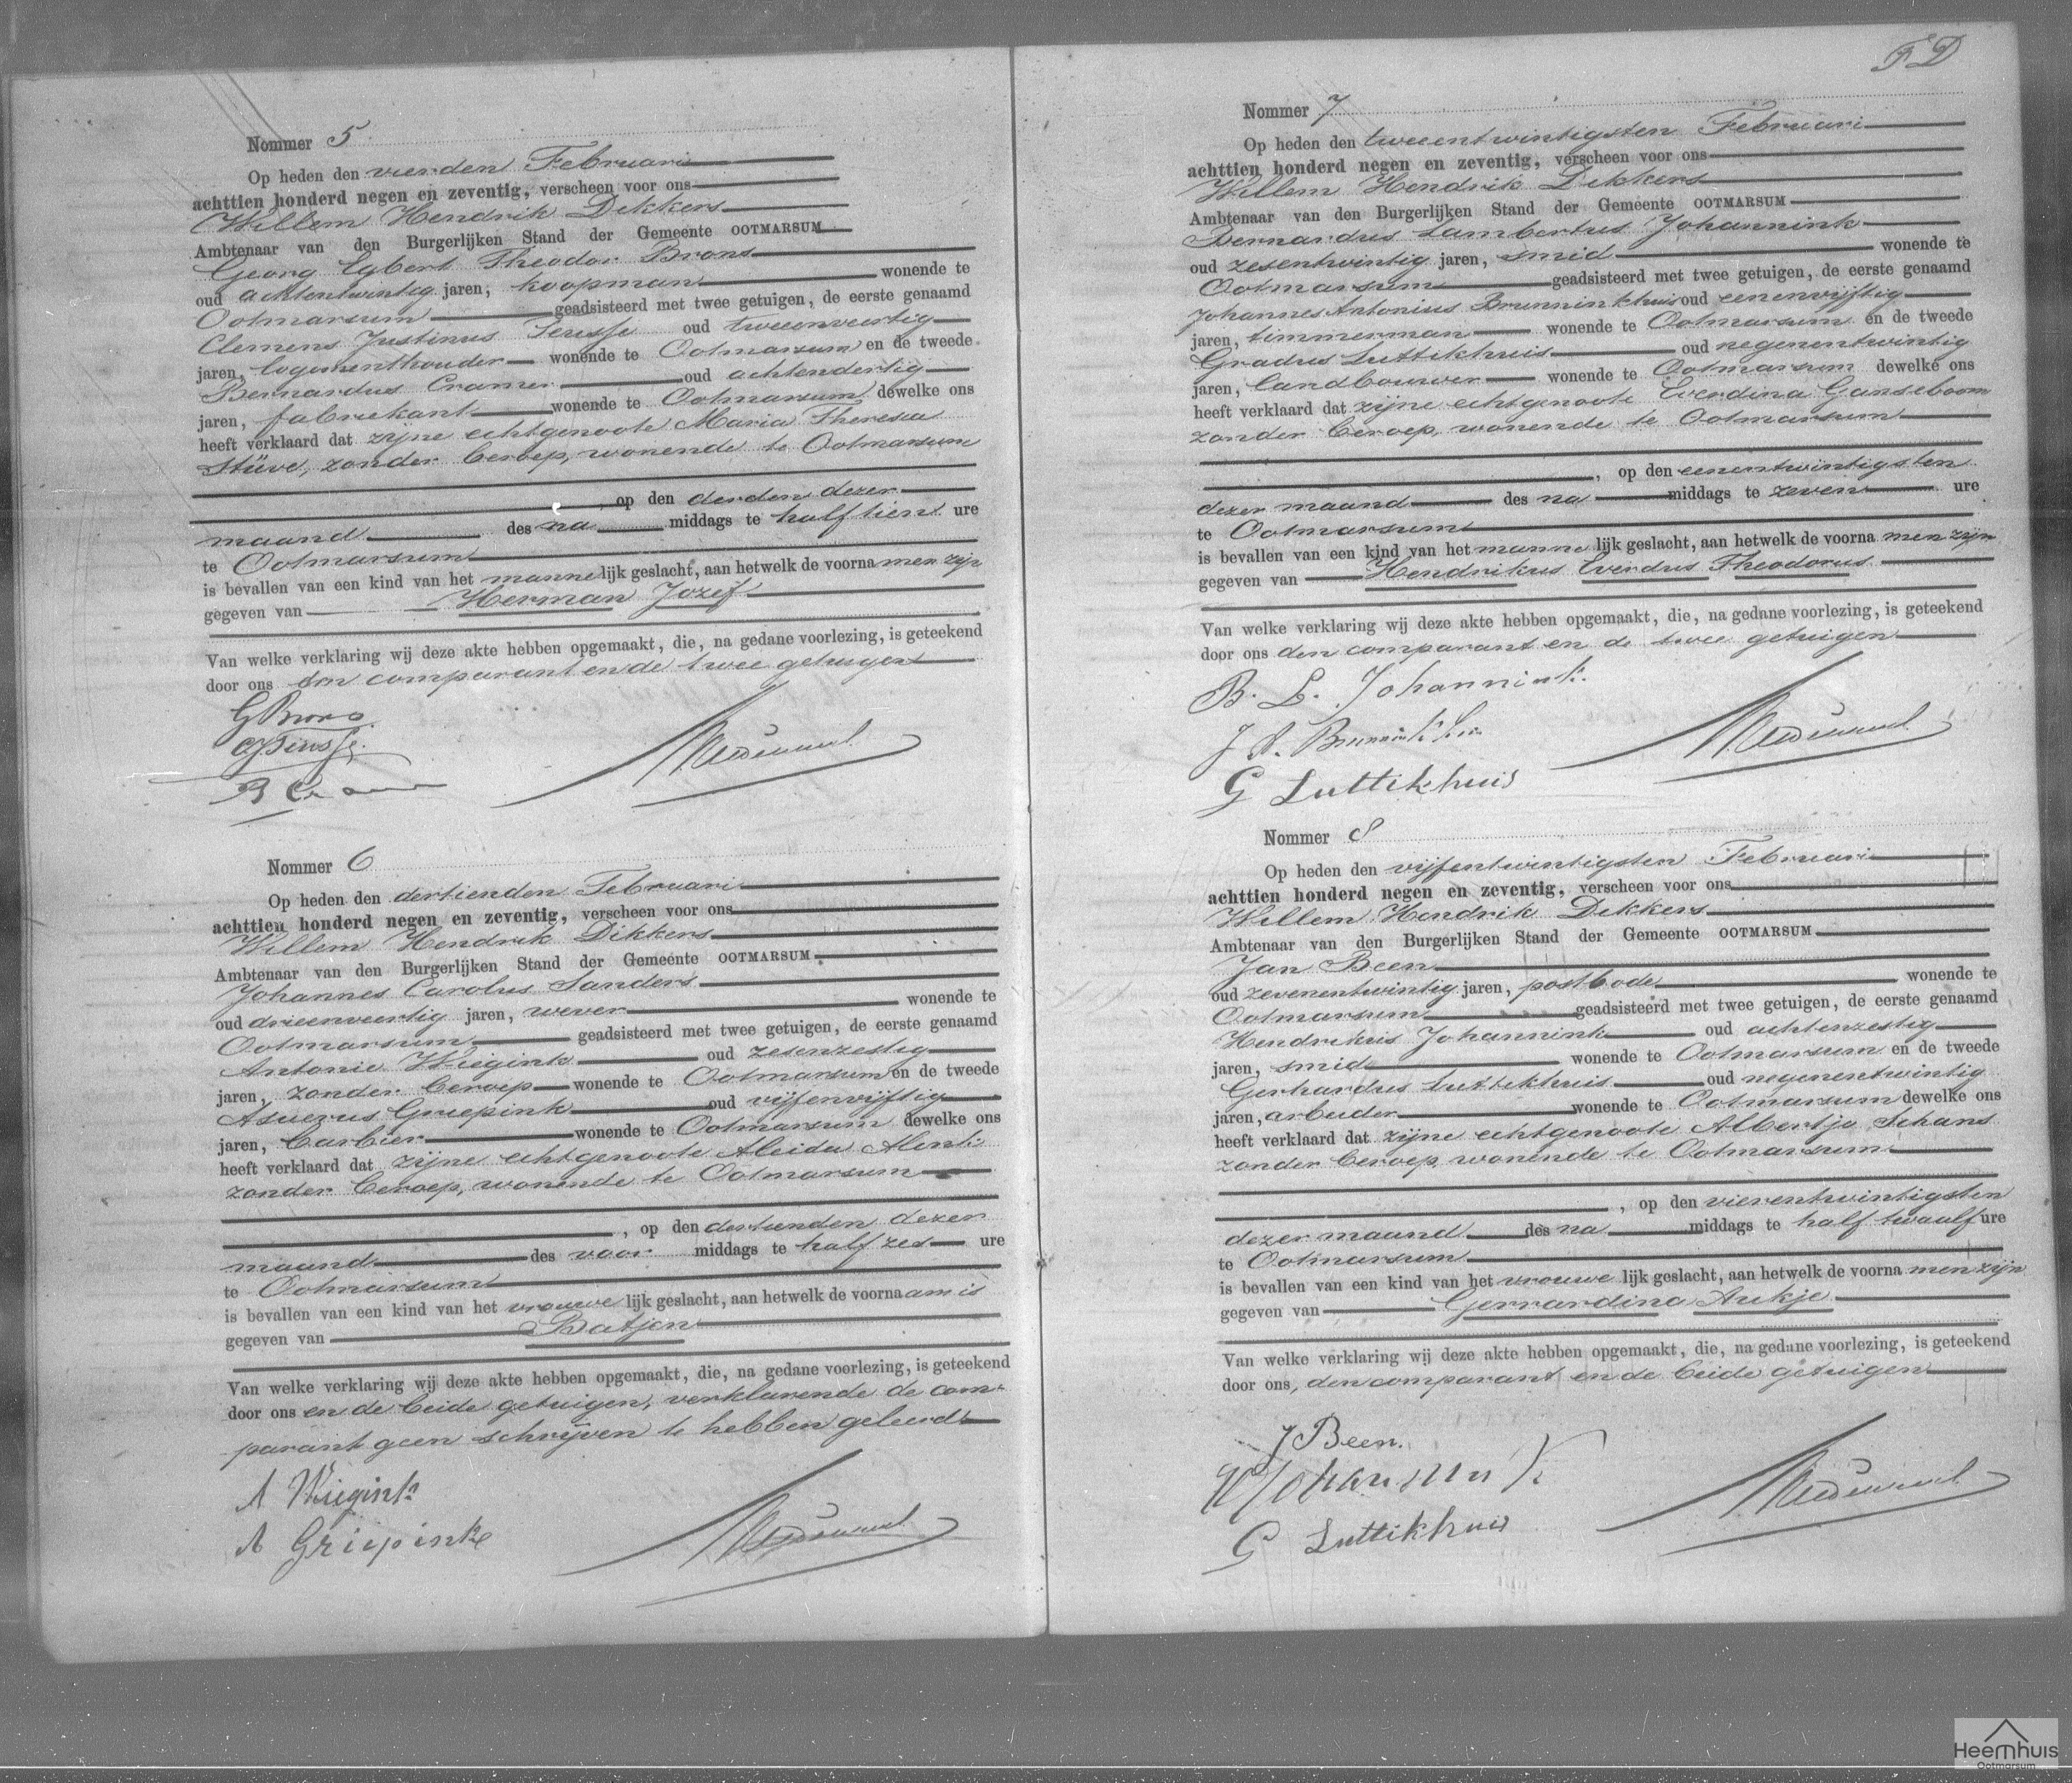 Nommer 5
Op heden den vierden Februari
achttien honderd negen en zeventig, verscheen voor ons
Willem Hendrik Dikkers
Ambtenaar van den Burgerlijken Stand der Gemeente OOTMARSUM
Georg Egbert Theodor Brons
oud achtentwintig jaren, koopman wonende te
Ootmarsum geadsisteerd met twee getuigen, de eerste genaamd
Clemens Justinus oud tweeenveertig
jaren, logementhouder wonende te Ootmarsum en de tweede
Bernardus Cramer oud achtendertig
jaren, fabriekant wonende te Ootmarsum dewelke ons
heeft verklaard dat zijne echtgenoote Maria Theresia
Stüve, zonder beroep, wonende te Ootmarsum
op den derden dezer
maand des na middags te half tien ure
te Ootmarsum
is bevallen van een kind van het mannelijk geslacht, aan hetwelk de voornamen zijn
gegeven van Herman Jozef
Van welke verklaring wij deze akte hebben opgemaakt, die, na gedane voorlezing, is geteekend
door ons den comparant en de twee getuigen
G Brons
B Cramer
Nommer 6
Op heden den dertienden Februari
achttien honderd negen en zeventig, verscheen voor ons
Willem Hendrik Dikkers
Ambtenaar van den Burgerlijken Stand der Gemeente OOTMARSUM
Johannes Carolus Sanders
oud drieenveertig jaren, wever wonende te
Ootmarsum geadsisteerd met twee getuigen, de eerste genaamd
Antonie Wiegink oud zesenzestig
jaren, zonder beroep wonende te Ootmarsum en de tweede
Asuerus Griepink oud vijfenvijftig
jaren, barbier wonende te Ootmarsum dewelke ons
heeft verklaard dat zijne echtgenoote Aleida Alink
zonder beroep, wonende te Ootmarsum
, op den dertienden dezer
maand des voor middags te half zes ure
te Ootmarsum
is bevallen van een kind van het vrouwelijk geslacht, aan hetwelk de voornaam is
gegeven van Batjen
Van welke verklaring wij deze akte hebben opgemaakt, die, na gedane voorlezing, is geteekend
door ons en de beide getuigen, verklarende de com-
parant geen schrijven te hebben geleerd
A Wiegink
A Griepink
F D
Nommer 7
Op heden den tweeentwintigsten Februari
achttien honderd negen en zeventig, verscheen voor ons
Willem Hendrik Dikkers
Ambtenaar van den Burgerlijken Stand der Gemeente OOTMARSUM
Bernardus Lambertus Johannink
oud zesentwintig jaren, smid wonende te
Ootmarsum geadsisteerd met twee getuigen, de eerste genaamd
Johannes Antonius Brunninkhuis oud eenenvijftig
jaren, timmerman wonende te Ootmarsum en de tweede
Gradus Luttikhuis oud negenentwintig
jaren, landbouwer wonende te Ootmarsum dewelke ons
heeft verklaard dat zijne echtgenoote Everdina Ganseboom
zonder beroep, wonende te Ootmarsum
, op den eenentwintigsten
dezer maand des na middags te zeven ure
te Ootmarsum
is bevallen van een kind van het mannelijk geslacht, aan hetwelk de voornamen zijn
gegeven van Hendrikus Everdus Theodorus
Van welke verklaring wij deze akte hebben opgemaakt, die, na gedane voorlezing, is geteekend
door ons den comparant en de twee getuigen
B. L. Johannink
J A
G Luttikhuis
Nommer 8
Op heden den vijfentwintigsten Februari
achttien honderd negen en zeventig, verscheen voor ons
Willem Hendrik Dikkers
Ambtenaar van den Burgerlijken Stand der Gemeente OOTMARSUM
Jan Been
oud zevenentwintig jaren, postbode wonende te
Ootmarsum geadsisteerd met twee getuigen, de eerste genaamd
Hendrikus Johannink oud achtenzestig
jaren, smid wonende te Ootmarsum en de tweede
Gerhardus Luttikhuis oud negenentwintig
jaren, arbeider wonende te Ootmarsum dewelke ons
heeft verklaard dat zijne echtgenoote Albertje Schans
zonder beroep, wonende te Ootmarsum
, op den vierentwintigsten
dezer maand des na middags te half twaalf ure
te Ootmarsum
is bevallen van een kind van het vrouwelijk geslacht, aan hetwelk de voornamen zijn
gegeven van Gerrardina Aukje
Van welke verklaring wij deze akte hebben opgemaakt, die, na gedane voorlezing, is geteekend
door ons, den comparant en de beide getuigen
J Been.
H Johannink
G Luttikhuis
Heemhuis
Ootmarsum